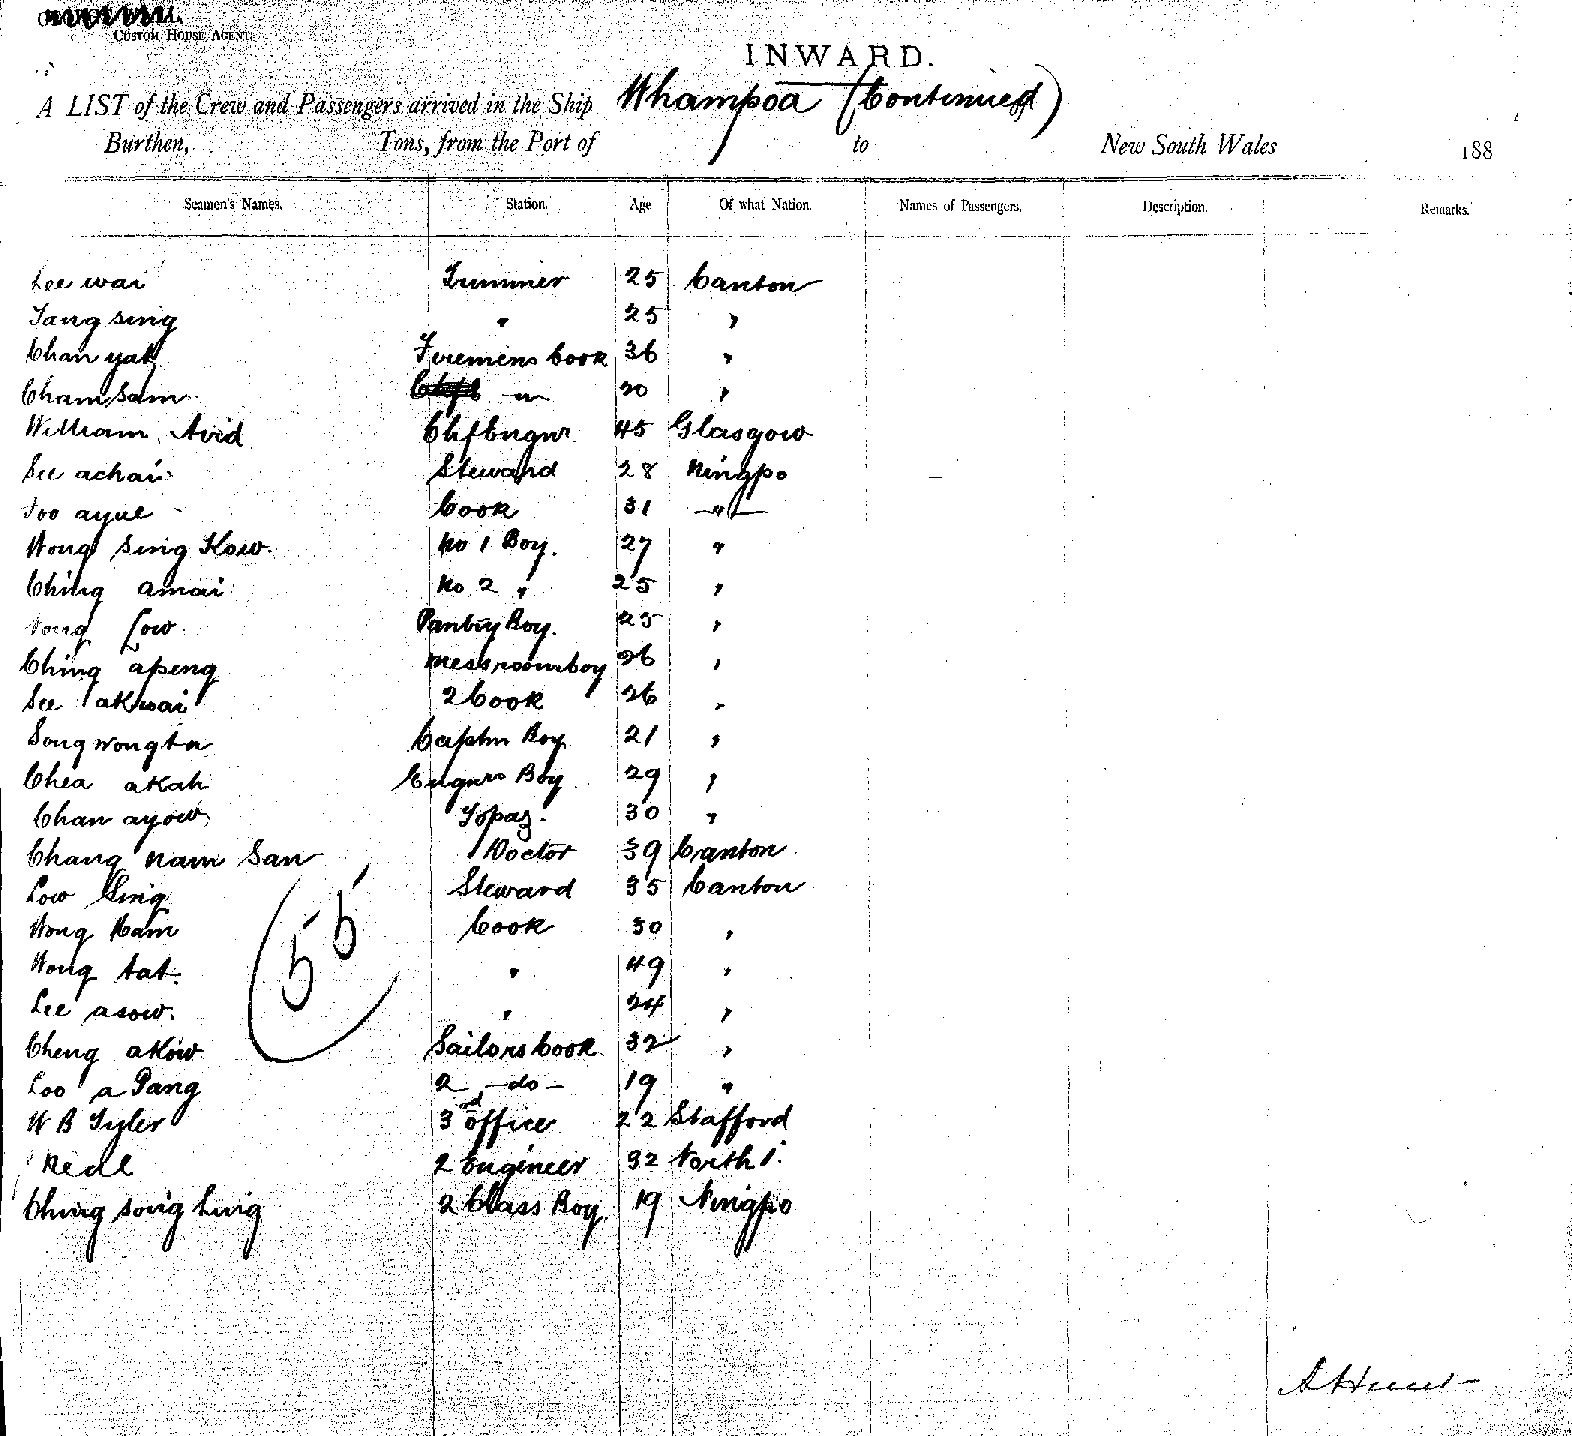 Custom House Agent
INWARD.
A LIST of the Crew and Passengers arrived in the Ship Whampoa (Continued)
Burthen, Tons, from the Port of to New South Wales 188
Seamen's Names. Station. Age Of what Nation. Names of Passengers. Description. Remarks.
Lee wai Trimmer 25 Canton
Tang sing " 25 "
Chan yak Firemens Cook 36 "
Cham Sam — " — 20 "
William Avid Chf Engnr 45 Glasgow
See achai Steward 28 Ningpo
Foo ayue Cook 31 — " —
Wong Sing Kow No 1 Boy. 27 "
Ching amai No 2 " 25 "
Wong Low Pantry Boy. 25 "
Ching apeng messroomboy 26 "
See akwai 2 Cook 26 "
Song wongta Captn Boy 21 "
Chea akah Engnrs Boy 29 "
Chan ayow Topaz. 30 "
Chang nam San Doctor 39 Canton
Low Sing Steward 35 Canton
Wong Kam Cook 30 "
Wong tat. " 49 "
Lee asow. " 24 "
Cheng akow Sailors Cook 32 "
Loo a Pang 2 — do — 19 "
W B Tyler 3rd office 22 Stafford
Neal 2 Engineer 32 North
Ching song Ling 2 Class Boy 19 Ningpo
55
A Hunt